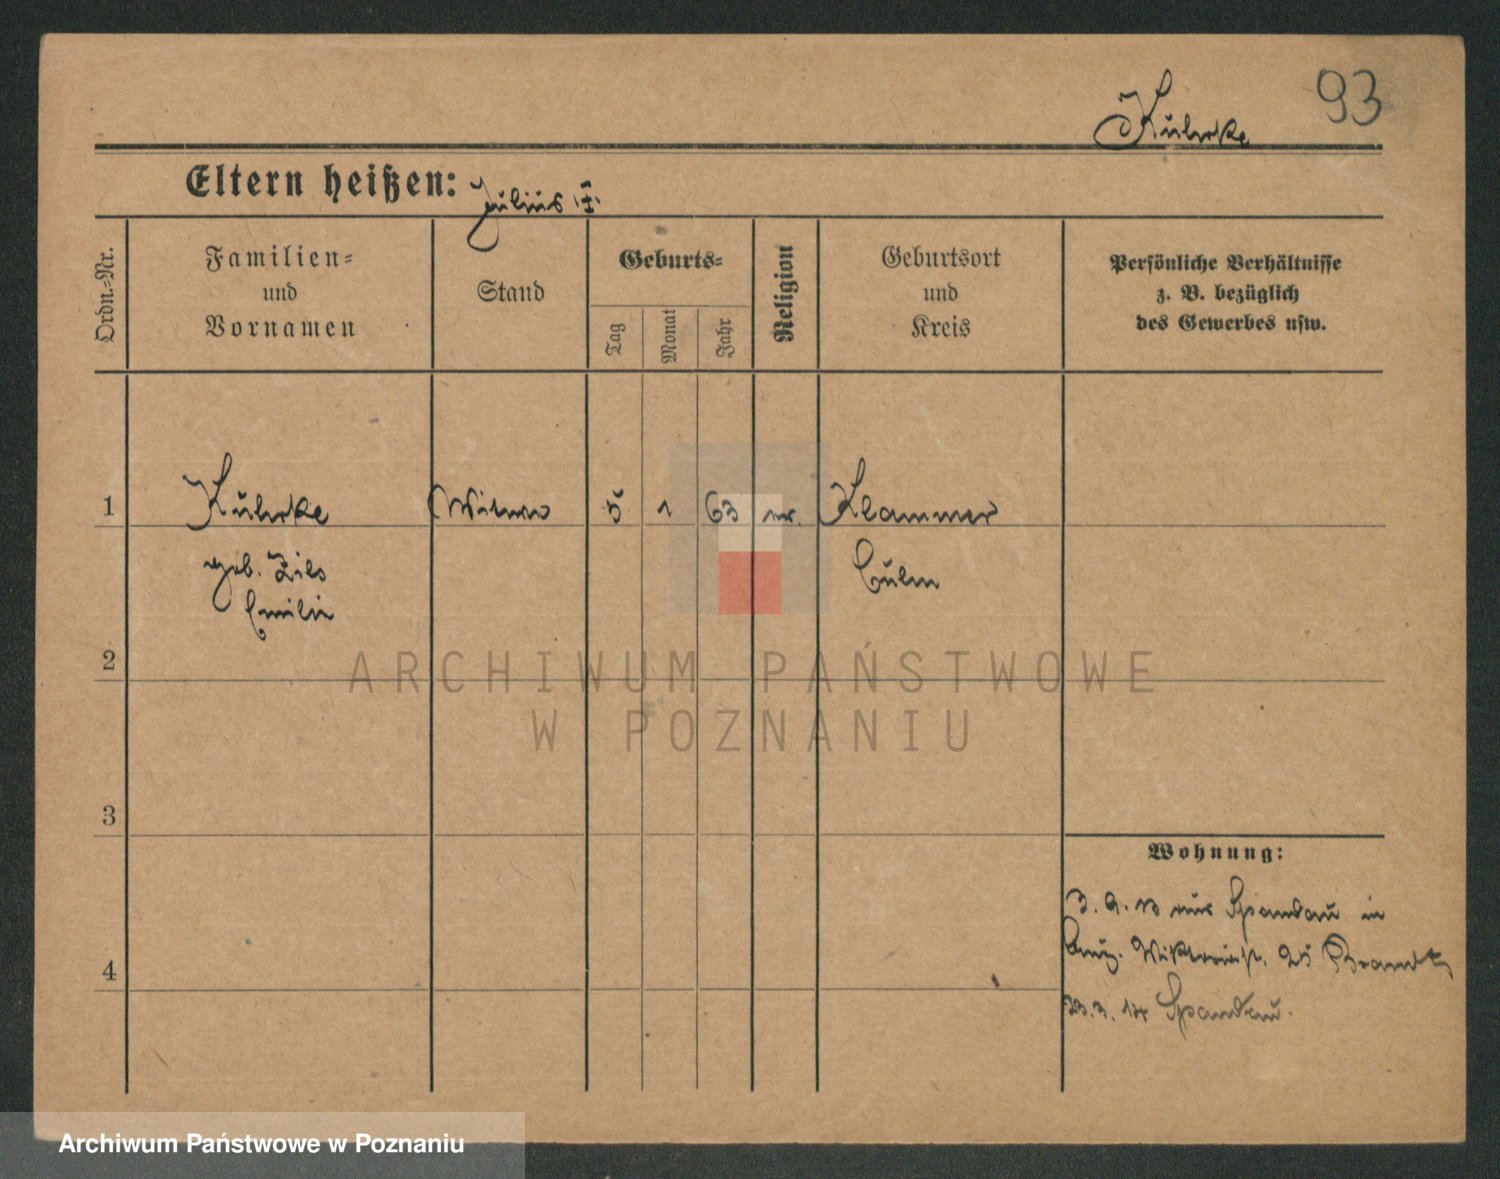 93
Kuhrke
Eltern heißen: Julius †
Ordn.-Nr.
Familien-
und
Vornamen
Stand
Geburts-
Tag
Monat
Jahr
Religion
Geburtsort
und
Kreis
Persönliche Verhältnisse
z. B. bezüglich
des Gewerbes usw.
1 Kuhrke Witwe 5 1 63 ev. Klammer
geb. Zils Culm
Emilie
2
ARCHIWUM PAŃSTWOWE
W POZNANIU
3
Wohnung:
3. 9. 13 aus Spandau in
Viktoriastr. 25 Brandt
4
23. 3. 14 Spandau.
Archiwum Państwowe w Poznaniu